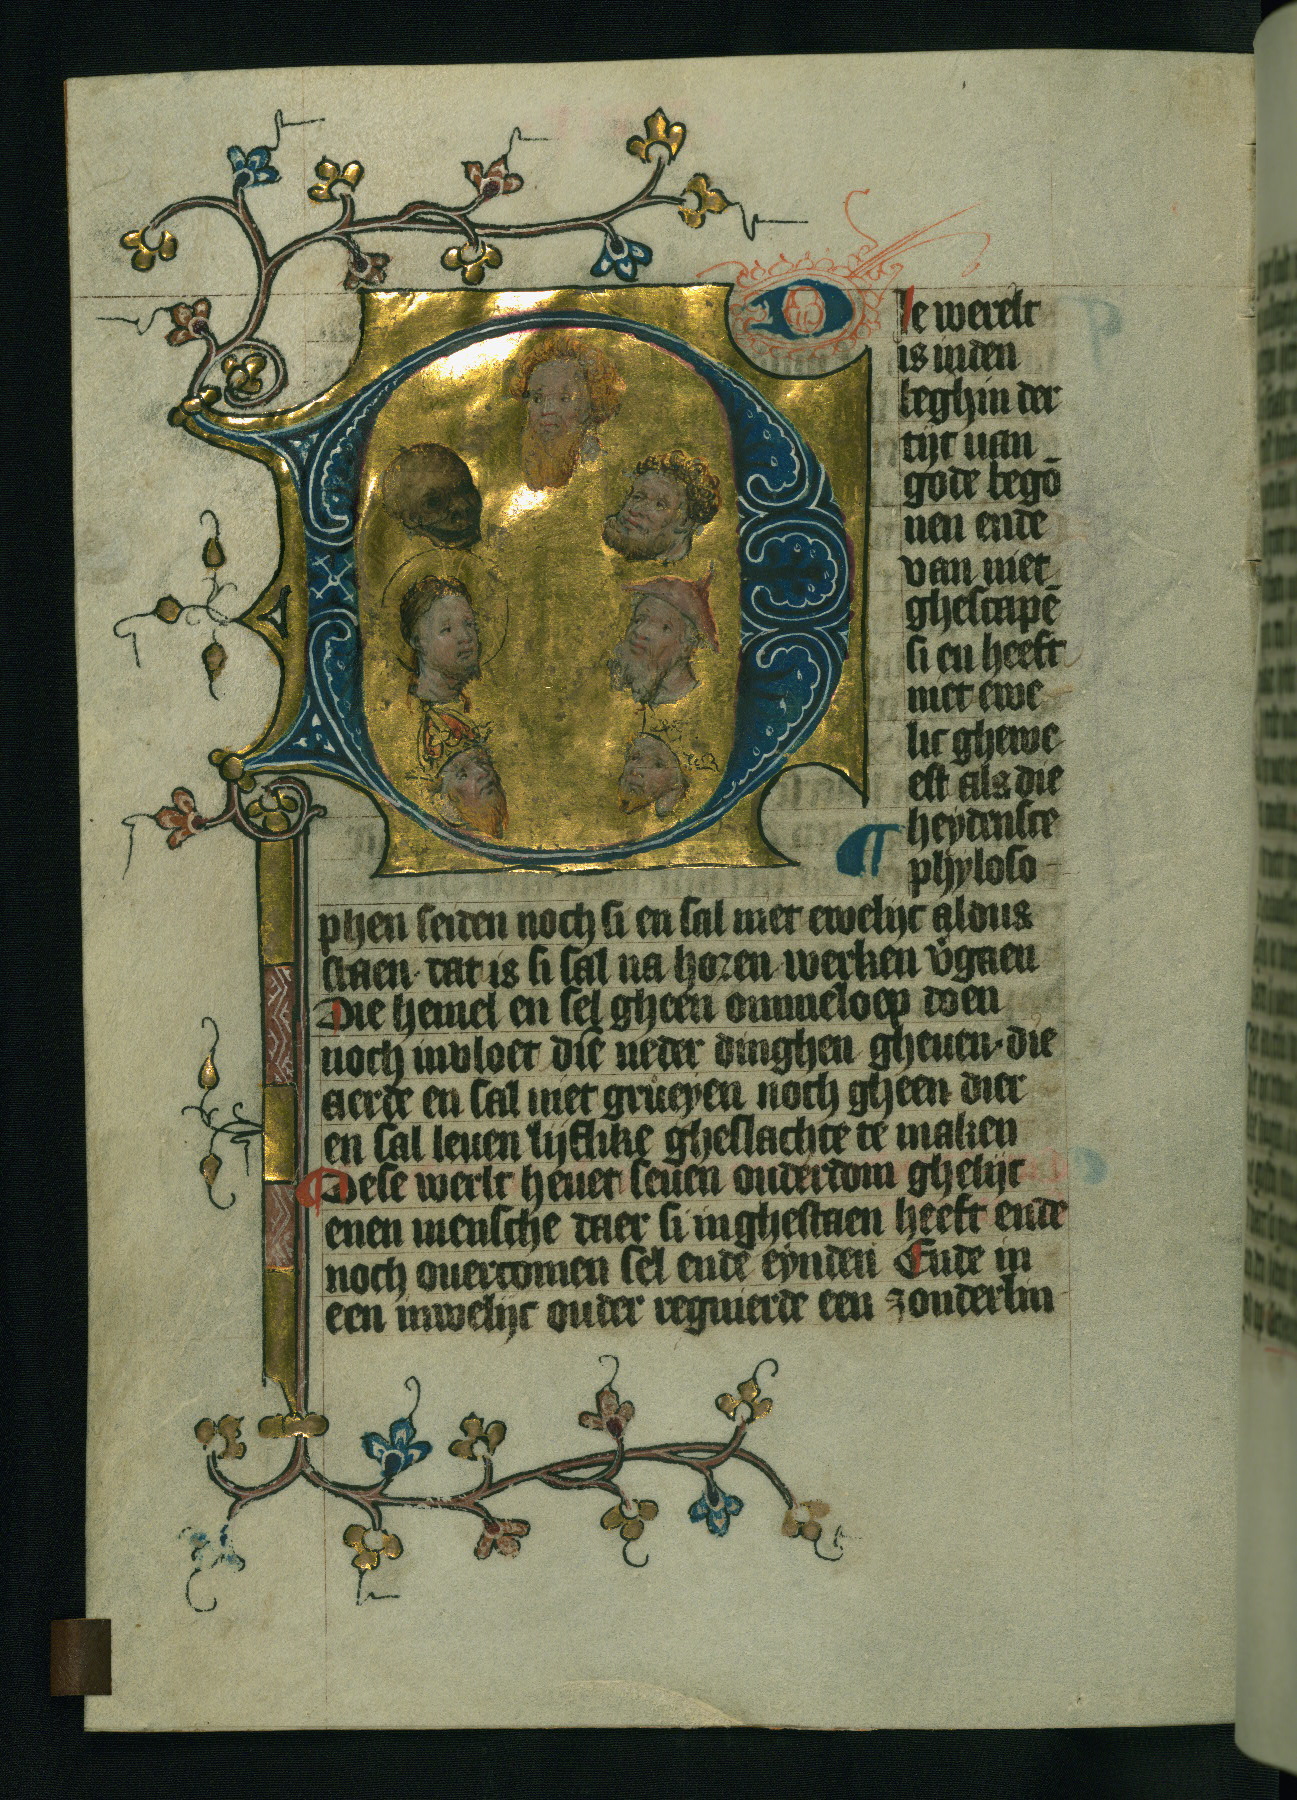 Die werelt
is inden
beghin der
tijt van
gode begō
nen ende
van niet
ghescapē
si en heeft
niet ewe
lic ghewe
est als die
heydensce
phyloso
phen seiden noch si en sal niet ewelijc aldus
staen· dat is si sal na horen werken v̄gaen
Die hemel en sel gheen ommeloep doen
noch invloet die neder dinghen gheuen· die
aerde en sal niet grueyen noch gheen dier
en sal leuen lijflike gheslachte te maken
Dese werlt heuet seuen ouderdom ghelijc
enen mensche daer si in ghestaen heeft ende
noch ouercomen sel ende eynden Ende in
een iuwelijc ouder regnierde een zonderlin